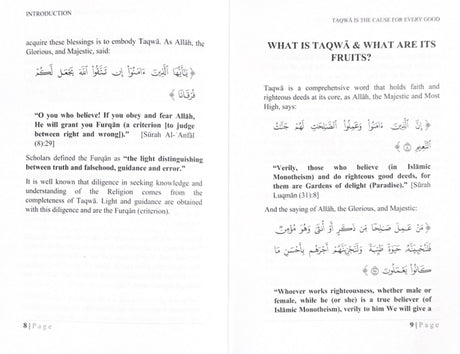 INTRODUCTION
acquire these blessings is to embody Taqwā. As Allāh, the
Glorious, and Majestic, said:
﴿ يَٰٓأَيُّهَا ٱلَّذِينَ ءَامَنُوٓا۟ إِن تَتَّقُوا۟ ٱللَّهَ يَجْعَل لَّكُمْ
فُرْقَانًا ﴾
“O you who believe! If you obey and fear Allāh,
He will grant you Furqān (a criterion [to judge
between right and wrong]).” [Sūrah Al-‘Anfāl
(8):29]
Scholars defined the Furqān as “the light distinguishing
between truth and falsehood, guidance and error.”
It is well known that diligence in seeking knowledge and
understanding of the Religion comes from the
completeness of Taqwā. Light and guidance are obtained
with this diligence and are the Furqān (criterion).
8 | Page
TAQWĀ IS THE CAUSE FOR EVERY GOOD
WHAT IS TAQWĀ & WHAT ARE ITS
FRUITS?
Taqwā is a comprehensive word that holds faith and
righteous deeds at its core, as Allāh, the Majestic and Most
High, says:
﴿ إِنَّ ٱلَّذِينَ ءَامَنُوا۟ وَعَمِلُوا۟ ٱلصَّٰلِحَٰتِ لَهُمْ جَنَّٰتُ
ٱلنَّعِيمِ ۝ ﴾
“Verily, those who believe (in Islāmic
Monotheism) and do righteous good deeds, for
them are Gardens of delight (Paradise).” [Sūrah
Luqmān (31):8]
And the saying of Allāh, the Glorious, and Majestic:
﴿ مَنْ عَمِلَ صَٰلِحًا مِّن ذَكَرٍ أَوْ أُنثَىٰ وَهُوَ مُؤْمِنٌ
فَلَنُحْيِيَنَّهُۥ حَيَوٰةً طَيِّبَةً وَلَنَجْزِيَنَّهُمْ أَجْرَهُم بِأَحْسَنِ مَا
كَانُوا۟ يَعْمَلُونَ ۝ ﴾
“Whoever works righteousness, whether male or
female, while he (or she) is a true believer (of
Islāmic Monotheism), verily to him We will give a
9 | Page